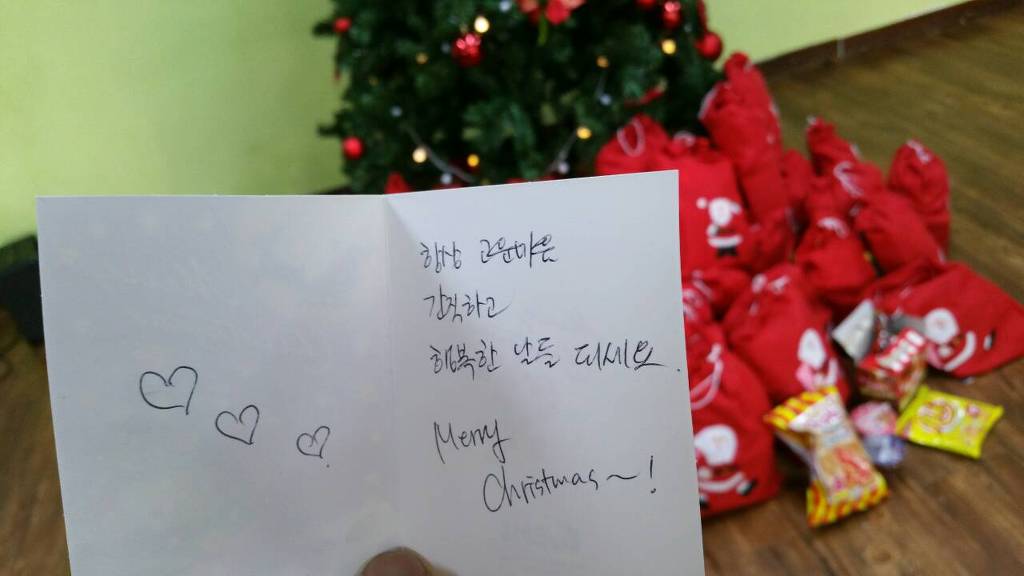 항상 고운마음
간직하고
행복한 날들 되세요.
Merry
Christmas~!